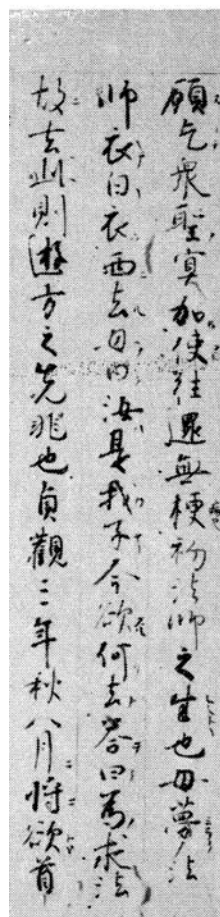 願乞衆聖冥加使往還無梗初法師之生也母夢法
師衣白衣西去母曰汝是我子今欲何去答曰爲求法
故去此則遊方之先兆也貞觀三年秋八月將欲首